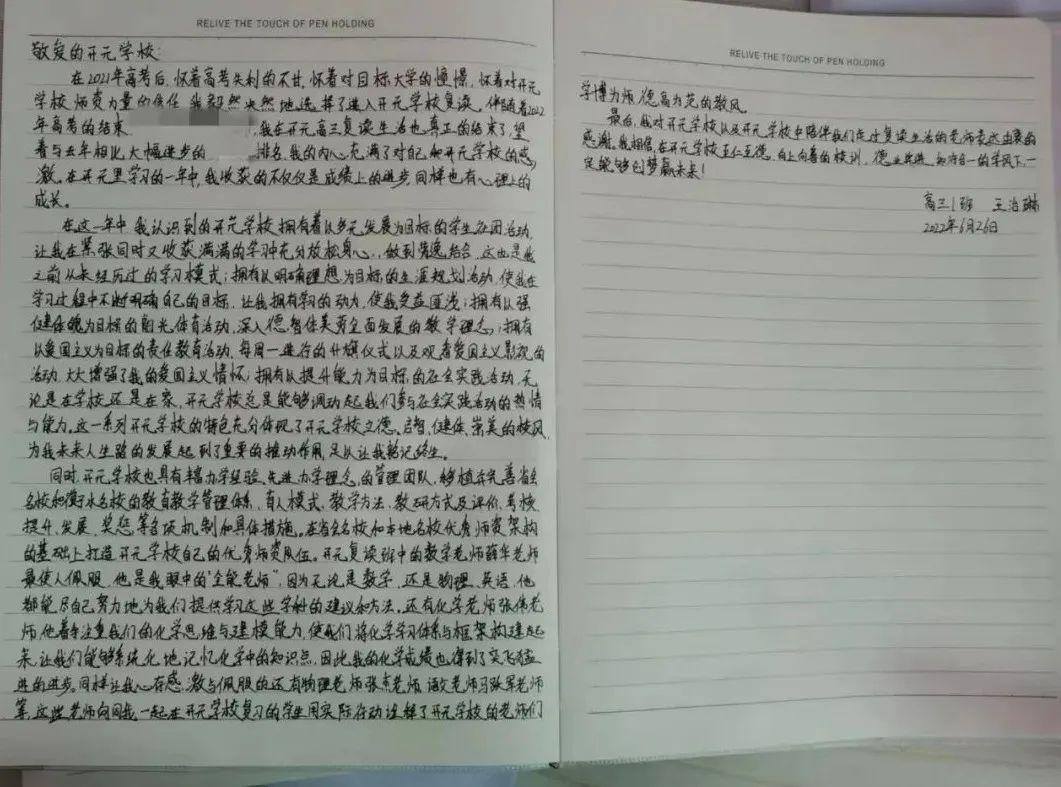 RELIVE THE TOUCH OF PEN HOLDING
敬爱的开元学校:
在2021年高考后,怀着高考失利的不甘,怀着对目标大学的憧憬,怀着对开元
学校师资力量的信任,我毅然决然地选择了进入开元学校复读。伴随着2022
年高考的结束,我在开元高三复读生活也真正的结束了,望
着与去年相比大幅进步的排名,我的内心充满了对自己和开元学校的感
激。在开元里学习的一年中,我收获的不仅仅是成绩上的进步,同样也有心理上的
成长。
在这一年中,我认识到的开元学校拥有着以多元发展为目标的学生社团活动,
让我在紧张同时又收获满满的学习中充分放松身心,做到劳逸结合,这也是我
之前从未经历过的学习模式;拥有以明确理想为目标的生涯规划活动,使我在
学习过程中不时明确自己的目标,让我拥有学习的动力,使我受益匪浅;拥有以强
健体魄为目标的阳光体育活动,深入德智体美劳全面发展的教学理念;拥有
以爱国主义为目标的责任教育活动,每周一进行的升旗仪式以及观看爱国主义影视的
活动,大大增强了我的爱国主义情怀;拥有以提升能力为目标的社会实践活动,无
论是在学校还是在家,开元学校总是能够调动起我们参与社会实践活动的热情
与能力。这一系列开元学校的特色充分体现了开元学校立德、启智、健体、崇美的校风,
为我未来人生路的发展起到了重要的推动作用,足以让我铭记终生。
同时,开元学校也具有丰富办学经验、先进办学理念的管理团队,移植并完善省会
名校和衡水名校的教育教学管理体系,育人模式,教学方法,教研方式及评价、考核
提升、发展、奖惩等各项机制和具体措施。在省会名校和本地名校优秀师资架构
的基础上打造开元学校自己的优秀师资队伍。开元复读班中的数学老师薛华老师
最使人佩服,他是我眼中的"全能老师",因为无论是数学,还是物理、英语,他
都能尽自己努力地为我们提供学习这些学科的建议和方法。还有化学老师张伟老
师,他着重注重我们的化学思维与建模能力,使我们将化学学习体系与框架构建起
来,让我们能够系统化地记忆化学中的知识点,因此我的化学成绩也得到了突飞猛
进的进步。同样让我心存感激与佩服的还有物理老师张杰老师,语文老师马跃军老师
等,这些老师向同我一起在开元学校复习的学生用实际行动诠释了开元学校的老师们
RELIVE THE TOUCH OF PEN HOLDING
学博为师,德高为范的教风。
最后,我对开元学校以及开元学校中陪伴我们走过复读生活的老师表达由衷的
感谢,我相信,在开元学校至仁至德、向上向善的校训,德业共进、知行合一的学风下,一
定能够创梦赢未来!
高三1班 王浩琳
2022年6月26日